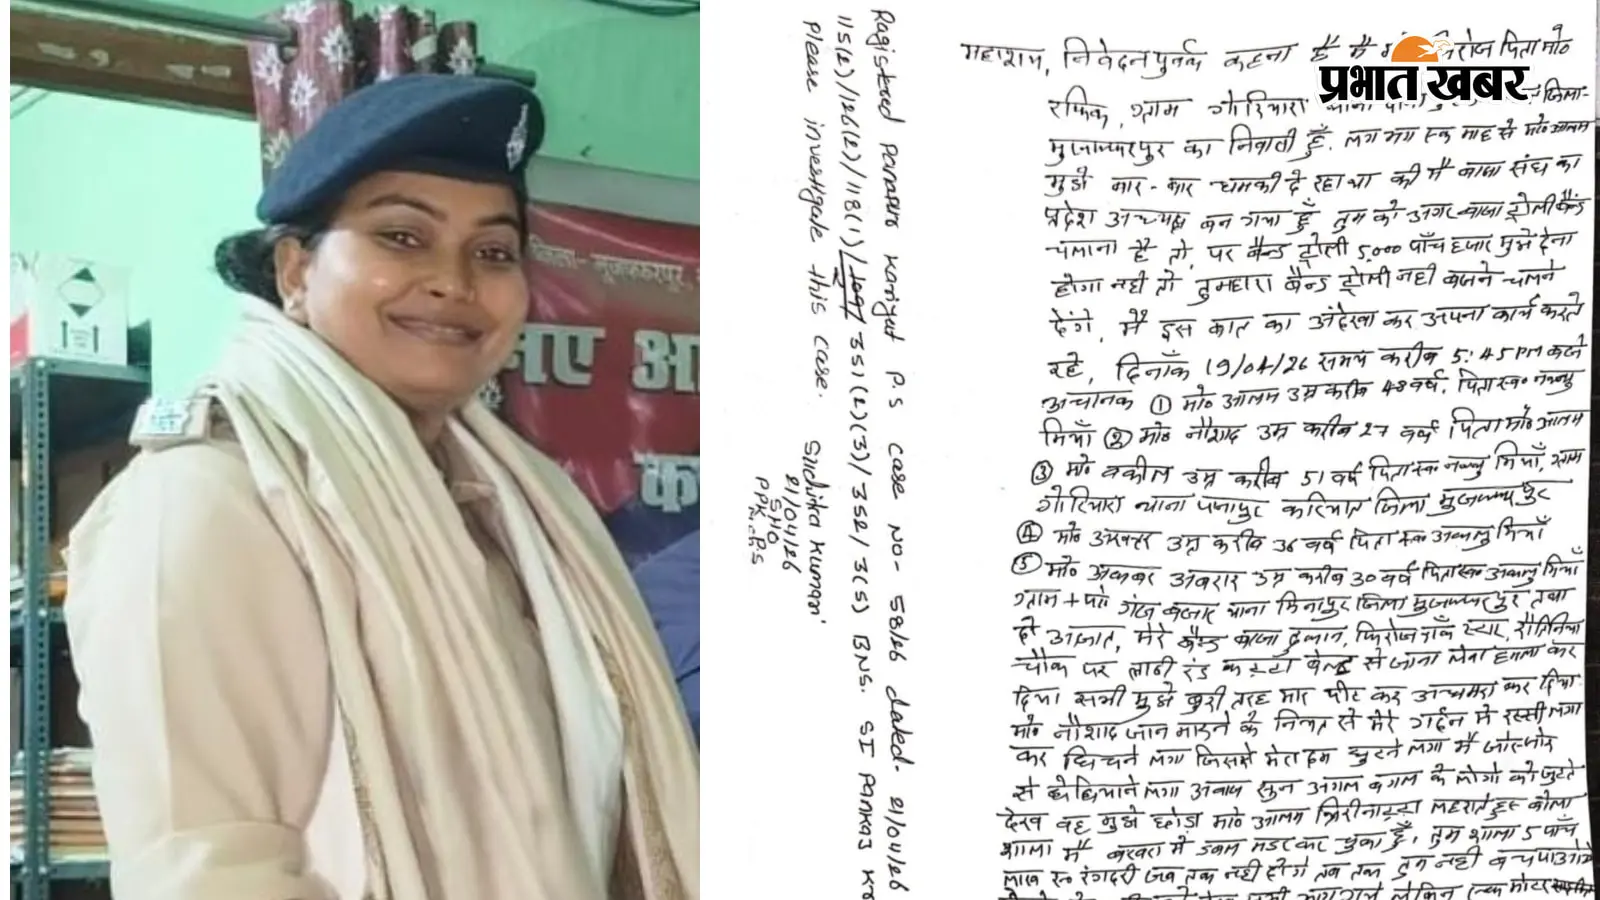 जिला- मुजफ्फरपुर,
नए आ
क
प्रभात खबर
Registered Panapur Kariyat P.S case No- 58/26 dated- 21/04/26
115(2)/126(2)/118(1)/109/351(2)(3)/352/3(5) BNS. SI Pankaj Kr
please investigate this case.
Suchitra Kumari
21/04/26
SHO
महाशय, निवेदन पुर्वक कहना है मै िरोज पिता मो०
रफिक, ग्राम गोरियारा थाना जिला-
मुजफ्फरपुर का निवासी हुँ. लग भग एक माह से मो० आलम
मुझे बार-बार धमकी दे रहा था की मै बाजा संघ का
प्रदेश अध्यक्ष बन गया हुँ, तुम को अगर बाजा ट्रोली बैन्ड
चलाना है तो, पर बैन्ड ट्रोली 5,000 पाँच हजार मुझे देना
होगा नही तो तुमहारा बैन्ड ट्रोली नही बजने चलने
देंगे, मै इस बात का अंदेखा कर अपना कार्य करते
रहे, दिनाँक 19/04/26 समय करीब 5:45PM बजे
अचानक ① मो० आलम उम्र करीब 48 वर्ष, पिता स्व०
मियाँ ② मो० नौशाद उम्र करीब 27 वर्ष पिता मो० आलम
③ मो० वकील उम्र करीब 51 वर्ष पिता स्व० मियाँ, ग्राम
गोरियारा थाना पनापुर करियात जिला मुजफ्फरपुर
④ मो० अख्तर उम्र करीब 36 वर्ष पिता स्व० मियाँ
⑤ मो० अकबर अबरार उम्र करीब 30 वर्ष पिता स्व० मियाँ
ग्राम + पो० गंज बजार थाना मिनापुर जिला मुजफ्फरपुर तथा
दो अज्ञात, मेरे बैन्ड बाजा दुकान, फिरोज स्टार,
चौक पर लाठी रड कट्टा बेल्ड से जान लेवा हमला कर
दिया सभी मुझे बुरी तरह मार पीट कर अधमरा कर दिया
मो० नौशाद जान मारने के नियत से मेरे गर्दन मे रस्सी लगा
कर खिचने लगा जिससे मेरा दम घुटने लगा मै जोर-जोर
से लगा अवाज सुन अगल बगल के लोगो को जुटते
देख वह मुझे छोड़ा मो० आलम लहराते हुए बोला
शाला मै मे डबल मडर कर चुका हुँ, तुम शाला 5 पाँच
लाख रू० रंगदारी जब तक नही दोगे तब तक तुम नही
लेकिन एक मोटर